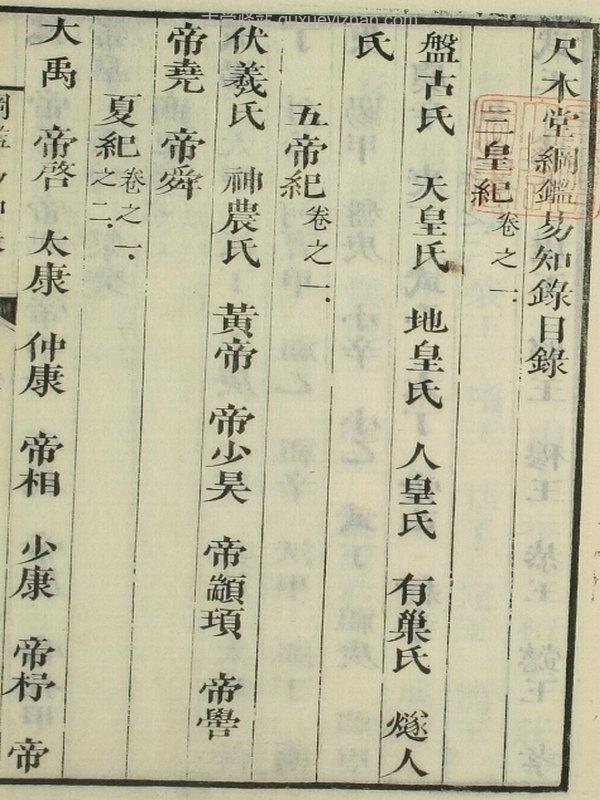 尺木堂綱鑑易知錄目錄
三皇紀 卷之一
盤古氏 天皇氏 地皇氏 人皇氏 有巢氏 燧人
氏
五帝紀 卷之一
伏羲氏 神農氏 黃帝 帝少昊 帝顓頊 帝嚳
帝堯 帝舜
夏紀 卷之一 之二
大禹 帝啓 太康 仲康 帝相 少康 帝杼 帝